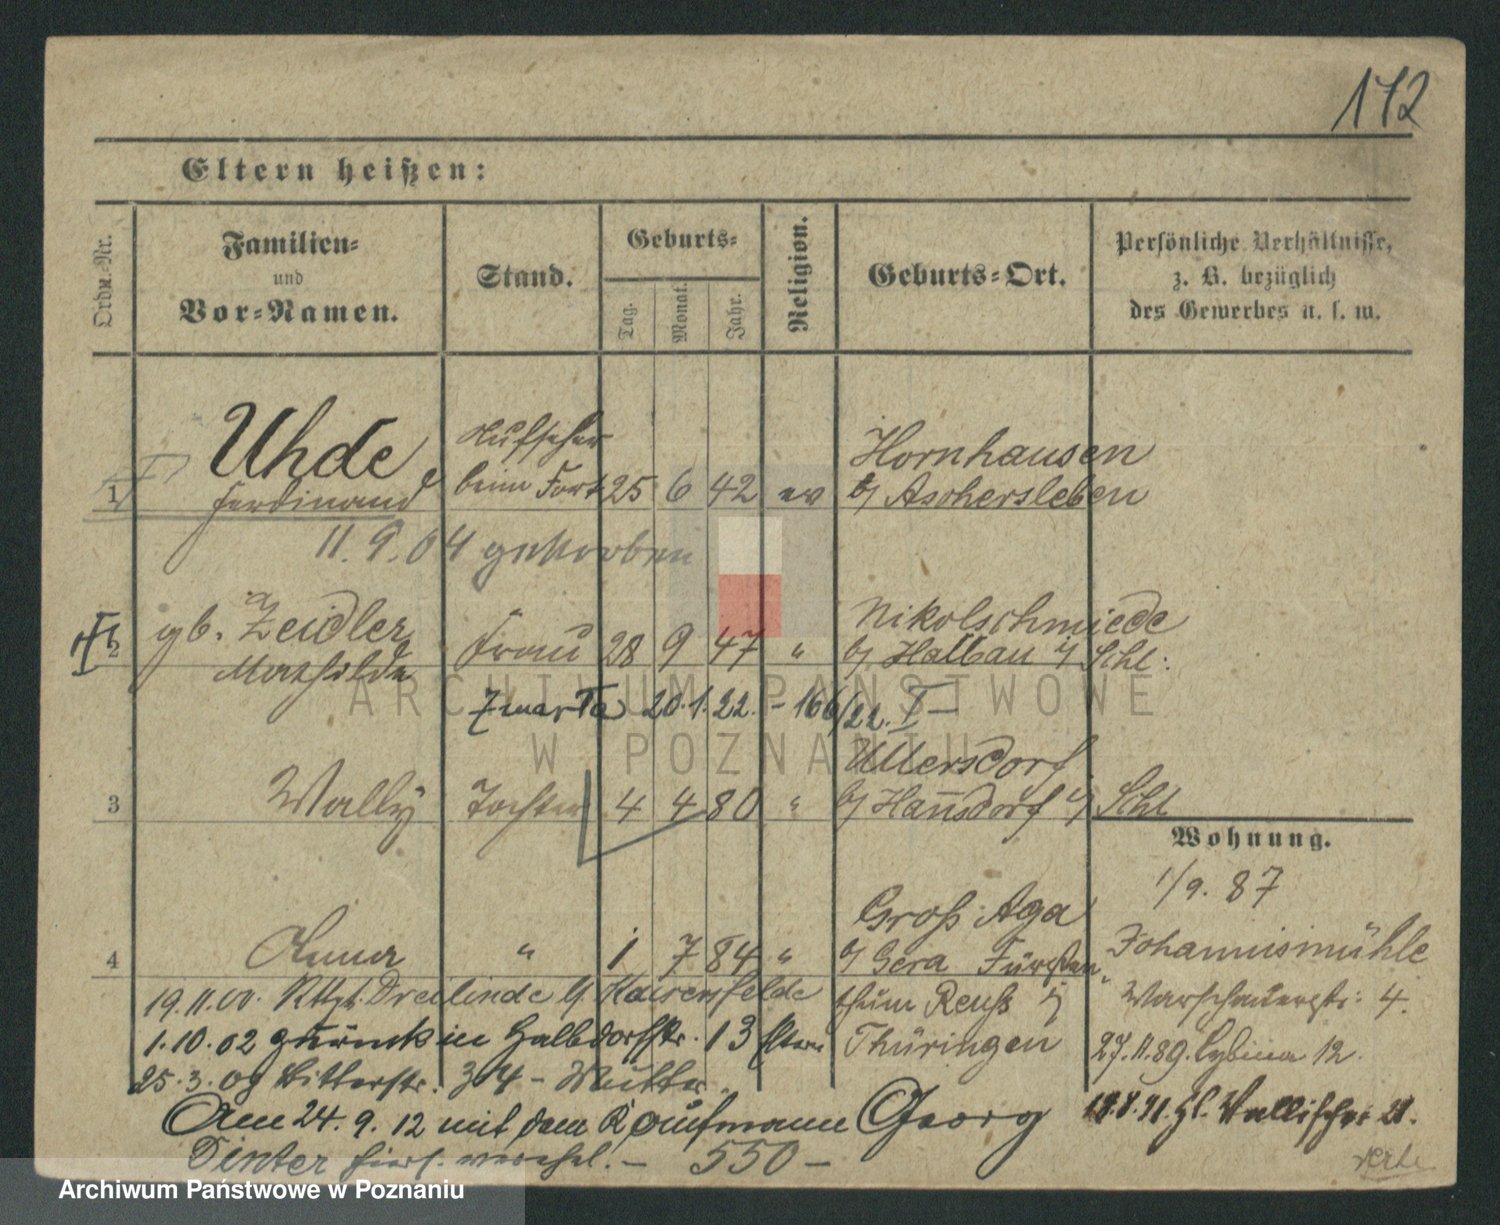 172
Eltern heißen:
Ordn.-Nr.
Familien-
und
Vor-Namen.
Stand.
Geburts-
Tag.
Monat.
Jahr.
Religion.
Geburts-Ort.
Persönliche Verhältnisse,
z. B. bezüglich
des Gewerbes u. s. w.
1 Uhde
Ferdinand
beim Fort 25 6 42 ev
Hornhausen
b/ Aschersleben
11.9.04 gestorben
2 gb. Zeidler
Mathilde
Frau 28 9 47 "
Nikolschmiede
b/ Halbau i/ Schl:
Zmarła 20.1.22. - 166/22. I -
3 Wally Tochter 4 4 80 "
Ullersdorf
b/ Hansdorf i/ Schl
Wohnung.
1/9. 87
4 Anna " 1 7 84 "
Groß Aga
b/ Gera Fürsten-
thum Reuß i/
Thüringen
Johannismühle
Warschauerstr: 4.
27.11.89. Cybina 12.
21.
19.11.00. Rttgt. Dreilinde b/ Kaisersfelde
1.10.02 zurück in Halbdorfstr. 13 Eltern
25.3.09 Ritterstr. 34 - Mutter
Am 24.9.12 mit dem Kaufmann Georg
Dinter hiers. verehel. - 550 -
verte
ARCHIWUM PAŃSTWOWE
W POZNANIU
Archiwum Państwowe w Poznaniu